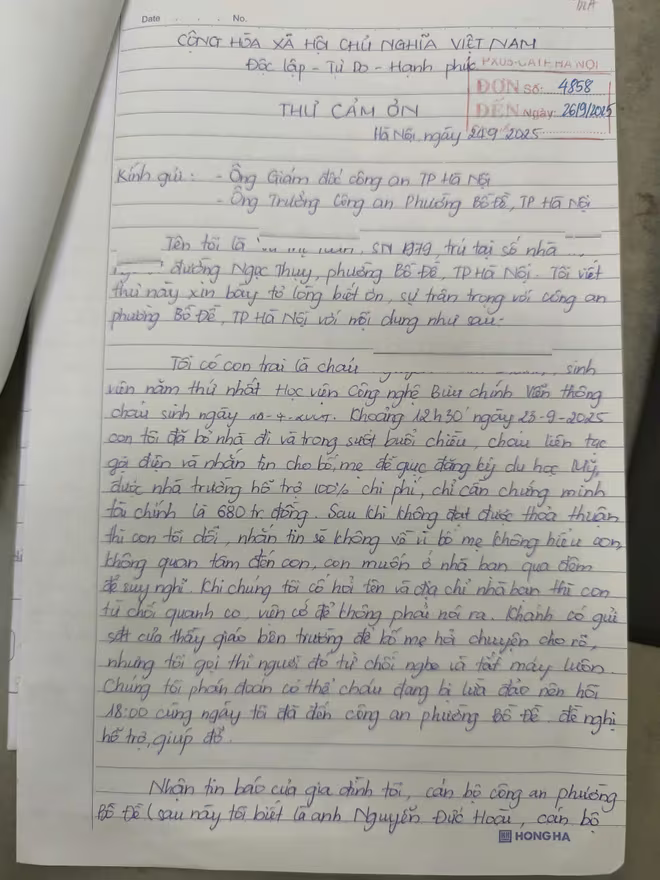 Date . . . No.
CỘNG HÒA XÃ HỘI CHỦ NGHĨA VIỆT NAM
Độc lập - Tự Do - Hạnh phúc
PX05-CATP HÀ NỘI
ĐƠN Số: 4858
ĐẾN Ngày: 26/9/2025
THƯ CẢM ƠN
Hà Nội ngày 24.9.2025
Kính gửi: - Ông Giám đốc công an TP Hà Nội
- Ông Trưởng Công an Phường Bồ Đề, TP Hà Nội
Tên tôi là , SN 1979, trú tại số nhà
đường Ngọc Thụy, phường Bồ Đề, TP Hà Nội. Tôi viết
thư này xin bày tỏ lòng biết ơn, sự trân trọng với công an
phường Bồ Đề, TP Hà Nội với nội dung như sau:
Tôi có con trai là cháu , sinh
viên năm thứ nhất Học viện Công nghệ Bưu chính Viễn thông
cháu sinh ngày Khoảng 12h30' ngày 23-9-2025
con tôi đã bỏ nhà đi và trong suốt buổi chiều, cháu liên tục
gọi điện và nhắn tin cho bố, mẹ để giục đăng ký du học Mỹ,
được nhà trường hỗ trợ 100% chi phí, chỉ cần chứng minh
tài chính là 680 tr đồng. Sau khi không đạt được thỏa thuận
thì con tôi dỗi, nhắn tin sẽ không về vì bố mẹ không hiểu con,
không quan tâm đến con, con muốn ở nhà bạn qua đêm
để suy nghĩ. Khi chúng tôi cố hỏi tên và địa chỉ nhà bạn thì con
từ chối quanh co, viện cớ để không phải nói ra. Khánh có gửi
sđt của thầy giáo bên trường để bố mẹ hỏi chuyện cho rõ,
nhưng tôi gọi thì người đó từ chối nghe và tắt máy luôn.
Chúng tôi phán đoán có thể cháu đang bị lừa đảo nên hồi
18:00 cùng ngày tôi đã đến công an phường Bồ Đề đề nghị
hỗ trợ, giúp đỡ.
Nhận tin báo của gia đình tôi, cán bộ công an phường
Bồ Đề (sau này tôi biết là anh Nguyễn Đức Hoài, cán bộ
HONG HA